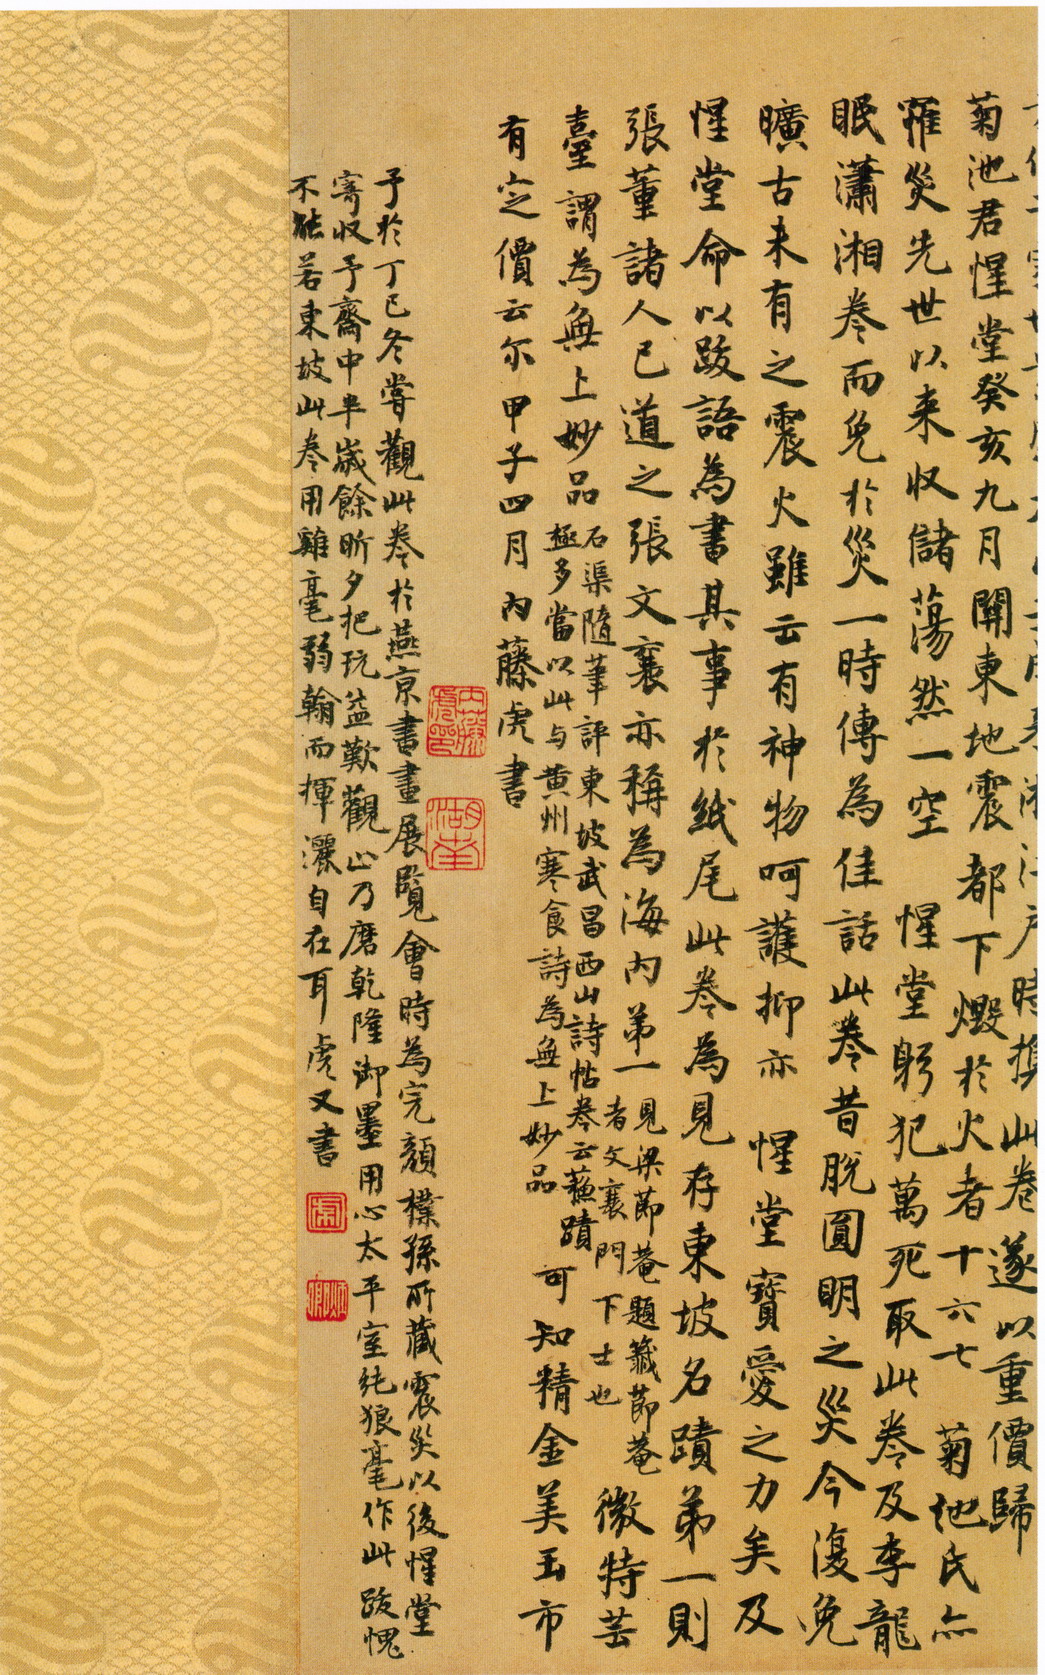 時攜此卷遂以重價歸
菊池君惺堂癸亥九月關東地震都下燬於火者十六七菊池氏亦
罹災先世以來收儲蕩然一空惺堂躬犯萬死取此卷及李龍
眠瀟湘卷而免於災一時傳為佳話此卷昔脫圓明之災今復免
曠古未有之震火雖云有神物呵護抑亦惺堂寶愛之力矣及
惺堂命以跋語為書其事於紙尾此卷為見存東坡名蹟第一則
張董諸人已道之張文襄亦稱為海內第一
見梁節菴題籤節菴
者文襄門下士也
微特芸
臺謂為無上妙品
石渠隨筆評東坡武昌西山詩帖卷云蘇蹟
極多當以此与黃州寒食詩為無上妙品
可知精金美玉市
有定價云尔甲子四月內藤虎書
內藤虎印
湖南
予於丁巳冬嘗觀此卷於燕京書畫展覽會時為完顏樸孫所藏震災以後惺堂
寄收予齋中半歲餘昕夕把玩益歎觀止乃磨乾隆御墨用心太平室純狼毫作此跋愧
不能若東坡此卷用雞毫弱翰而揮灑自在耳虎又書
虎
炳卿